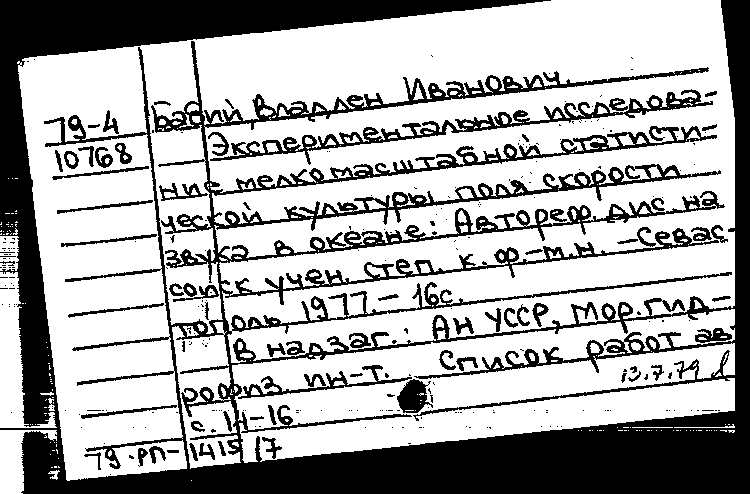 Бабий, Владлен Иванович.
79-4
10768
Экспериментальное исследова-
ние мелкомасштабной статисти-
ческой культуры поля скорости
звука в океане: Автореф. дис. на
соиск. учен. степ. к. ф.-м.н. -Севас-
тополь, 1977.- 16с.
В надзаг.: АН УССР, Мор. гид-
рофиз. ин-т. Список работ ав
с. 14-16
13.7.79
79-рп-1415/7